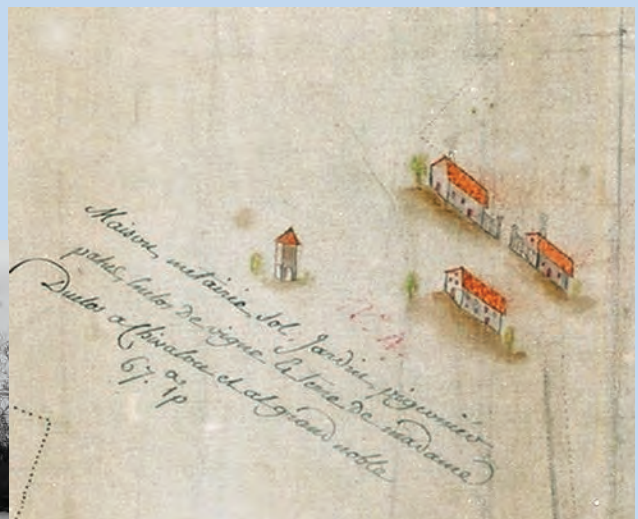 Maison, metairie, Sol, Jardin, pigeonier,
patus, de vigne la terre de madame
Duclos a et al grand noble
67. a 1p